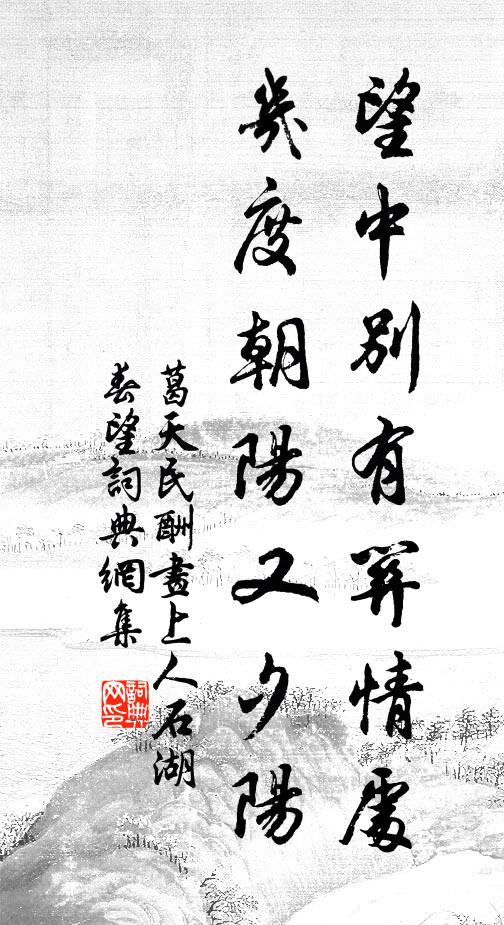 望中別有關情處
幾度朝陽又夕陽
葛天民酬畫上人石湖
春望詞典網集
詞典網印